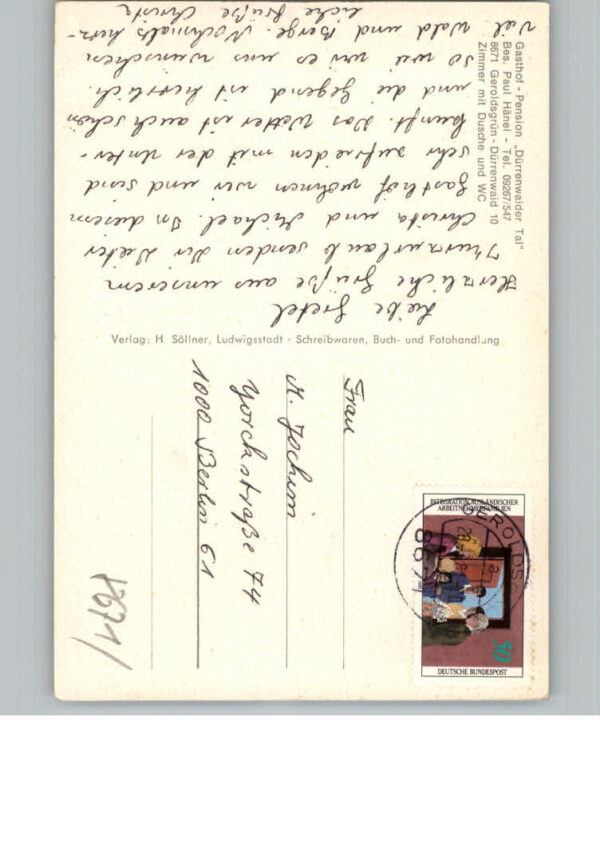 Gasthof - Pension „Dürrenwaider Tal"
Bes. Paul Hänel - Tel. 09267/547
8671 Geroldsgrün - Dürrenwaid 10
Zimmer mit Dusche und WC
Liebe Gretel
Herzliche Grüße aus unserem
Kurzurlaub senden Dir Dieter
Christa und Michael. In diesem
Gasthof wohnen wir und sind
sehr zufrieden mit der Unter-
kunft. Das Wetter ist auch schön
und die Gegend ist herrlich.
So wie wir es uns wünschen
viel Wald und Berge. Nochmals herz-
liche Grüße Christa
Verlag: H. Söllner, Ludwigsstadt · Schreibwaren, Buch- und Fotohandlung
Frau
M. Jochim
Yorckstraße 74
1000 Berlin 61
INTEGRATION AUSLÄNDISCHER
ARBEITNEHMERFAMILIEN
50
DEUTSCHE BUNDESPOST
GEROLDS
8671